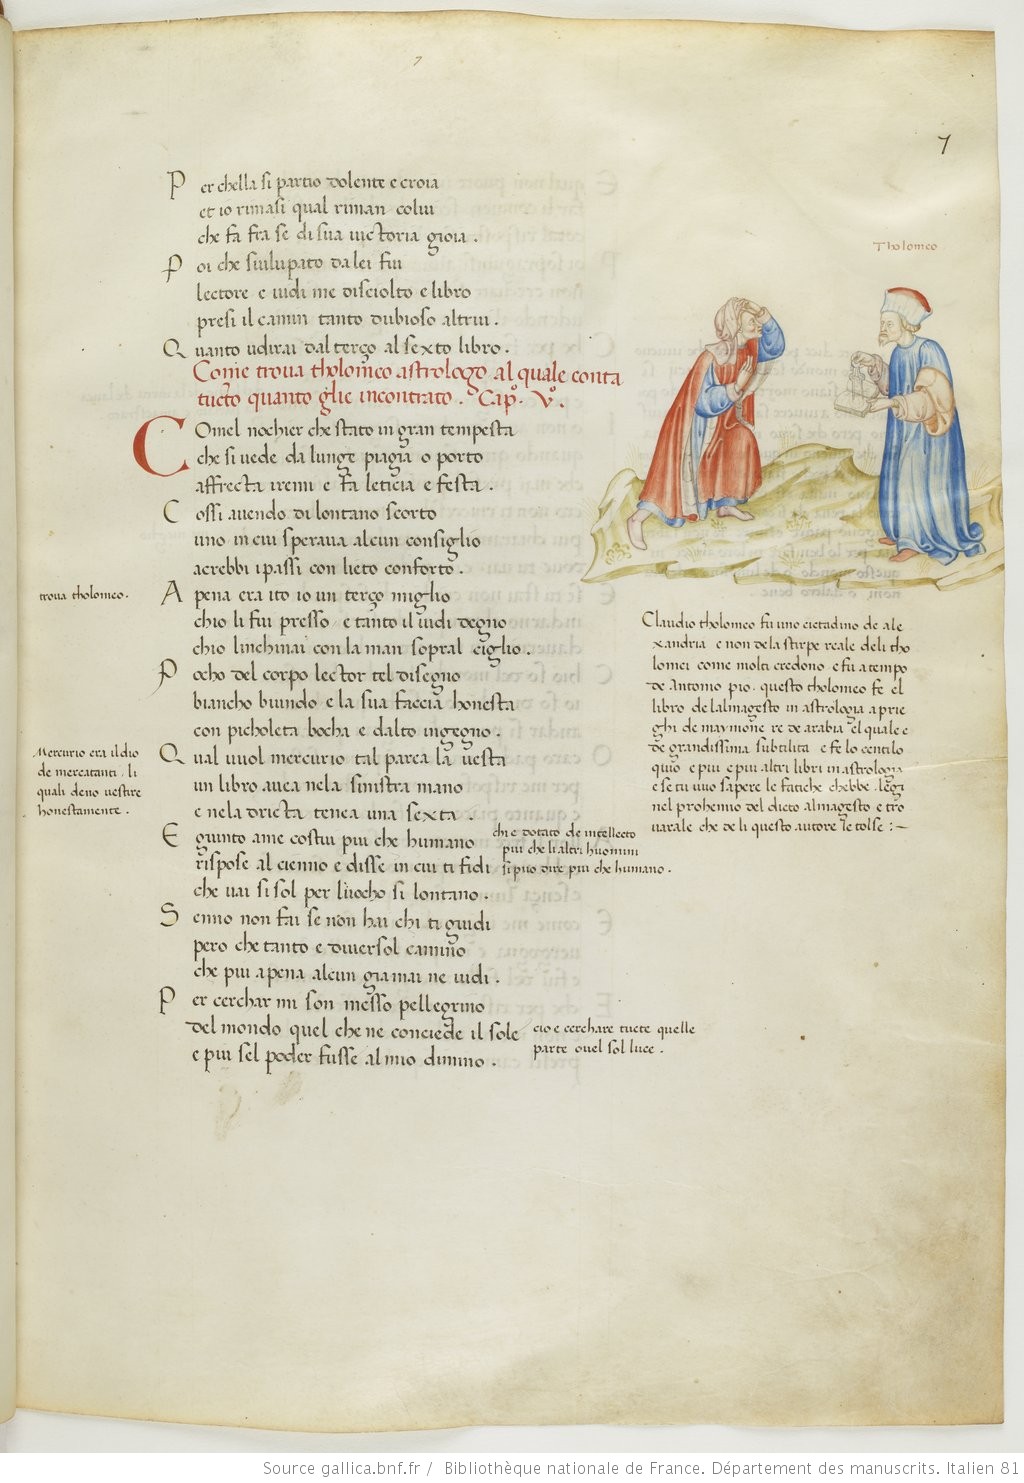 7
7
P er chella si partio dolente e croia
et io rimasi qual riman colui
che fa fra se di sua victoria gioia .
P oi che svilupato da lei fui
lectore e vidi me disciolto e libro
presi il camin tanto dubioso altrui .
Q vanto vdirai dal terço al sexto libro .
Come trova tholom̄eo astrologo al quale conta
tucto quanto glie incontrato . Capº. Vº.
C Omel nochier che stato in gran tempesta
che si vede da lunge piagia o porto
affrecta iremi e fa leticia e festa .
C ossi avendo di lontano scorto
uno in cui sperava alcun consiglio
acrebbi i passi con lieto conforto .
A pena era ito io un terço miglio
chio li fui presso e tanto il vidi degno
chio linchinai con la man sopral ciglio .
P ocho del corpo lector tel disegno
biancho biundo e la sua faccia honesta
con picholeta bocha e dalto ingegno .
Q val vuol mercurio tal parea la vesta
un libro avea nela sinistra mano
e nela dricta tenea una sexta .
E giunto ame costui piu che humano
rispose al cienno e disse in cui ti fidi
che vai si sol per luocho si lontano .
S enno non fai se non hai chi ti guidi
pero che tanto e diversol camino
che piu apena alcun giamai ne vidi .
P er cerchar mi son messo pellegrino
del mondo quel che ne conciede il sole
e piu sel poder fusse al mio dimino .
trova tholomeo .
Mercurio era il dio
de mercatanti . li
quali deno vestire
honestamente .
chi e dotato de intellecto
piu che li altri huomini
si puo dire piu che humano .
cio e cerchare tucte quelle
parte ovel sol luce .
Tholomeo
Claudio tholomeo fu uno cictadino de ale
xandria e non dela stirpe reale deli tho
lomei come molti credono e fu a tempo
de Antonio pio . questo tholomeo fe el
libro de lalmagesto in astrologia a prie
ghi de maymone re de arabia el quale e
de grandissima subtilita e fe lo centilo
quio e piu e piu altri libri in astrologia
e se tu vuo sapere le fatiche chebbe leggi
nel prohemio del dicto almagesto e tro
varale che de li questo autore le tolse :~
Source gallica.bnf.fr / Bibliothèque nationale de France. Département des manuscrits. Italien 81